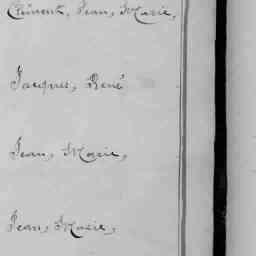 Clément, Jean, Marie,
Jacques, René
Jean, Marie,
Jean, Marie,